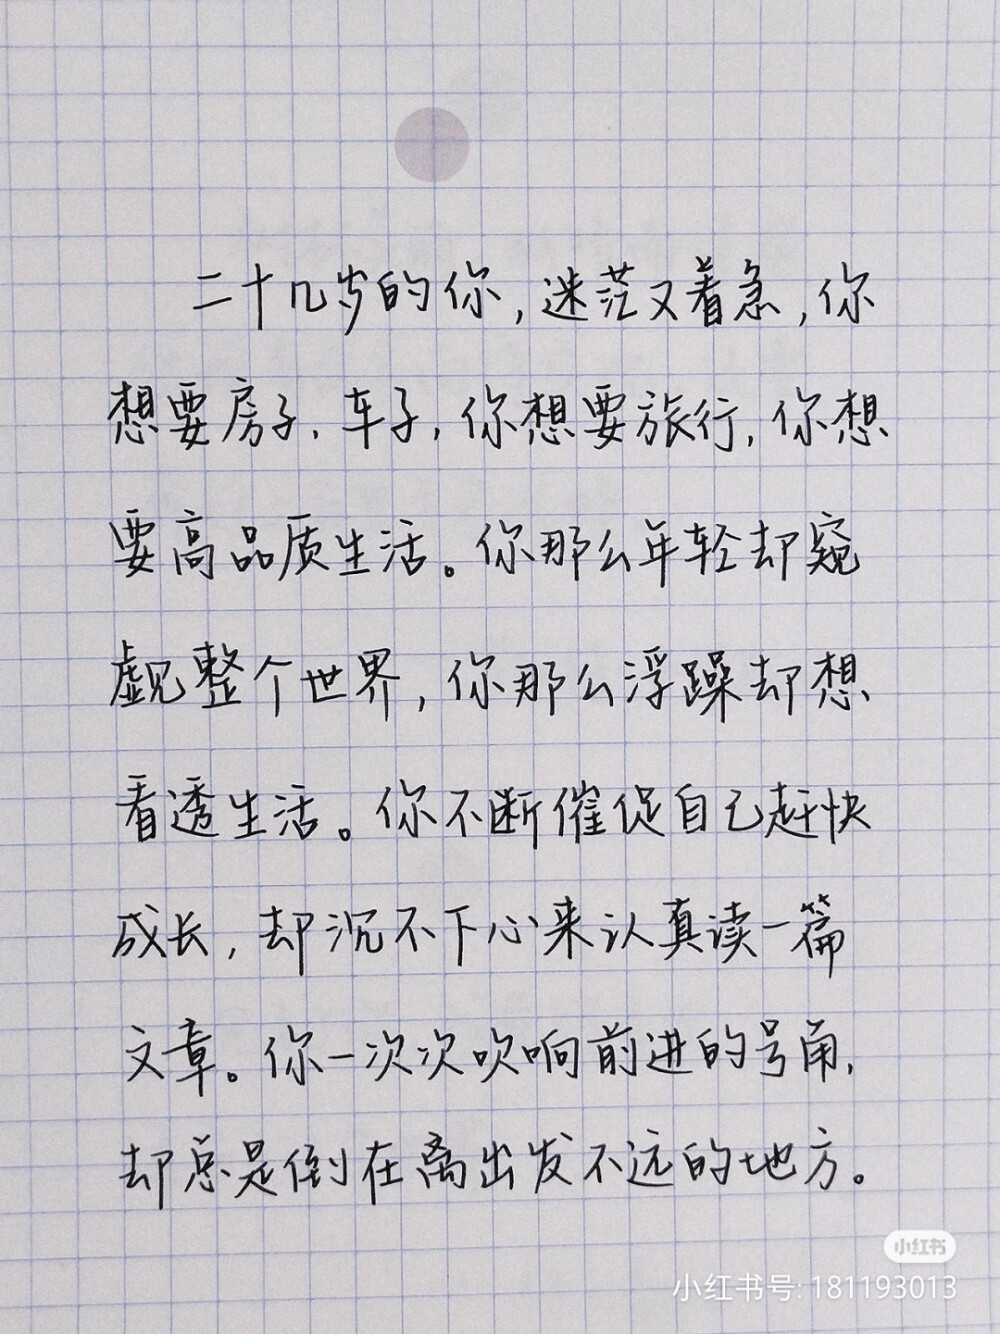 二十几岁的你，迷茫又着急，你
想要房子，车子，你想要旅行，你想
要高品质生活。你那么年轻却窥
觑整个世界，你那么浮躁却想
看透生活。你不断催促自己赶快
成长，却沉不下心来认真读一篇
文章。你一次次吹响前进的号角，
却总是倒在离出发不远的地方。
小红书
小红书号: 181193013